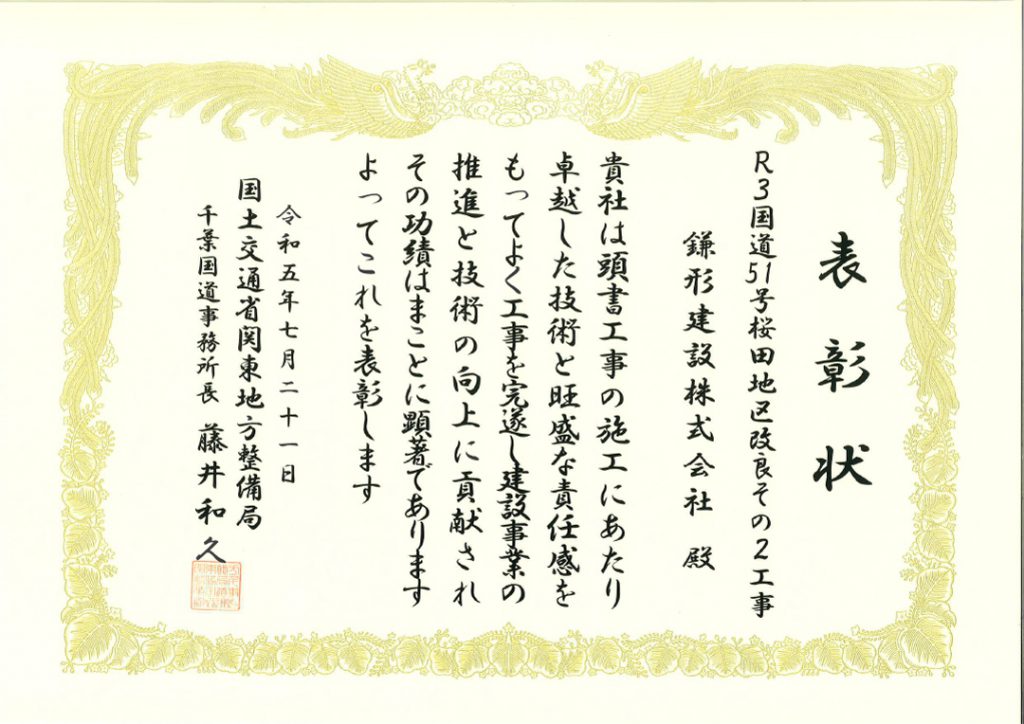 表彰状
R3国道51号桜田地区改良その2工事
鎌形建設株式会社 殿
貴社は頭書工事の施工にあたり
卓越した技術と旺盛な責任感を
もってよく工事を完遂し建設事業の
推進と技術の向上に貢献され
その功績はまことに顕著であります
よってこれを表彰します
令和五年七月二十一日
国土交通省関東地方整備局
千葉国道事務所長 藤井和久